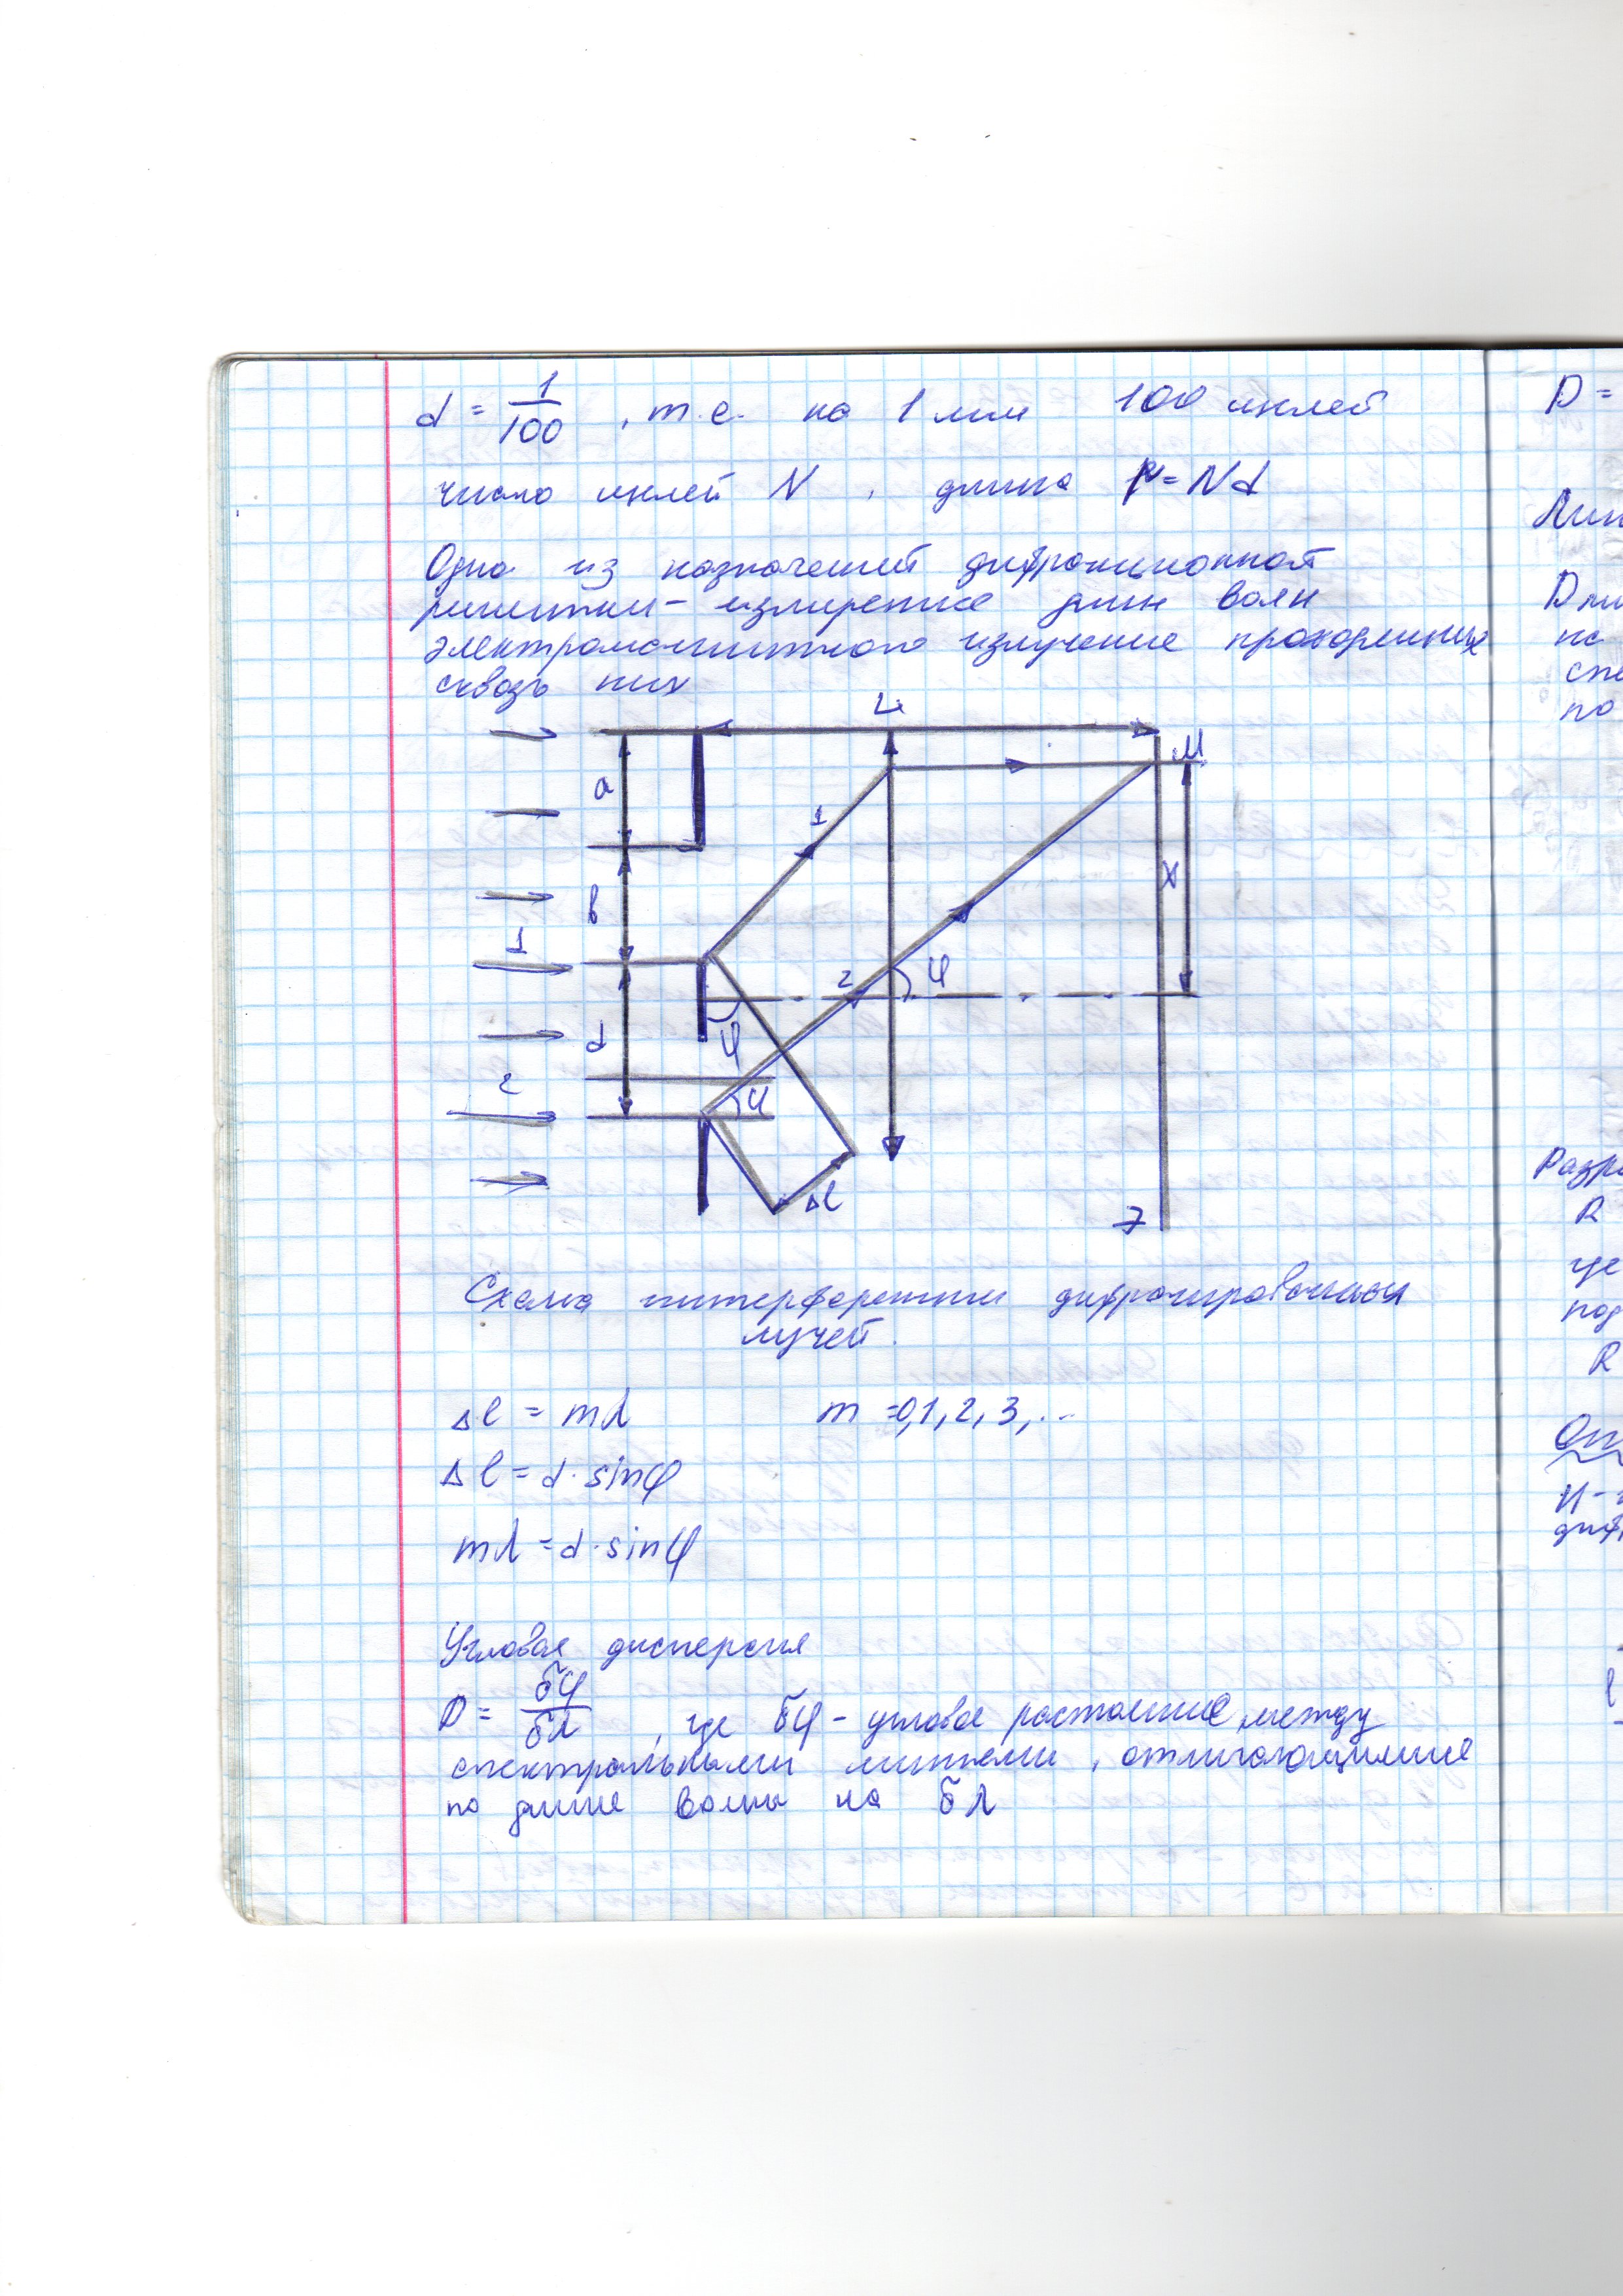 d = 1/100 , т.е. на 1 мм 100 щелей
число щелей N , длина = Nd
Одно из назначений дифракционной
решетки - измерение длин волн
электромагнитного излучение проходящих
сквозь них
L
M
a
1
X
в
1
2
φ
d
φ
2
φ
Δl
Э
Схема интерференции дифрагированных
лучей.
Δl = mλ m = 0, 1, 2, 3, ...
Δl = d · sinφ
mλ = d · sinφ
Угловая дисперсия
D = δφ/δλ , где δφ - угловое растояние между
спектральными линиями , отличающимися
по длине волны на δλ
D =
Лин
D лин
по
R
где
R